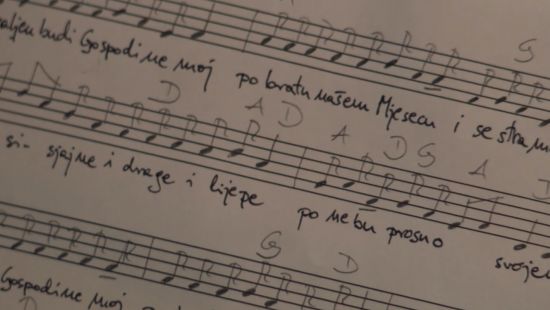 G
aljen budi Gospodine moj po bratu našem Mjesecu i sestram
D A D A D G A D
si- sjajne i drage i lijepe po nebu prosno svojem
G D
Gospodine moj
D